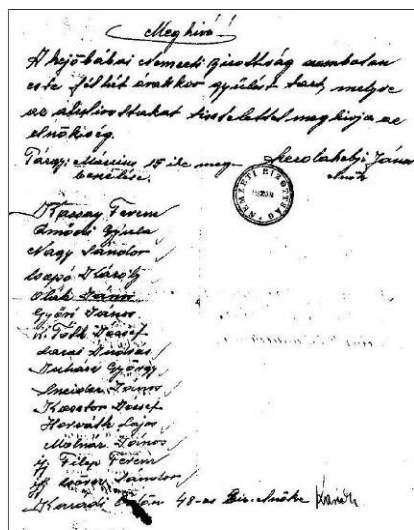 Meghívó!
A hejőbábai nemzeti bizottság szombaton
este fél hét órakkor gyülést tart, melyre
az alulirottakat tisztelettel meghivja az
elnökség.
Tárgy: Március 15 ike meg-
beszélése.
János
elnök
NEMZETI BIZOTTSÁG
Kassay Ferenc
Ómódi Gyula
Nagy Sándor
Csapó Károly
Oláh János
Győri János
K. Tóth József
Lacai András
Juhász György
Sneider János
Kosztor József
Horváth Lajos
Molnár János
ifj Filep Ferenc
ifj Sándor
Karádi 48-as Biz. elnöke